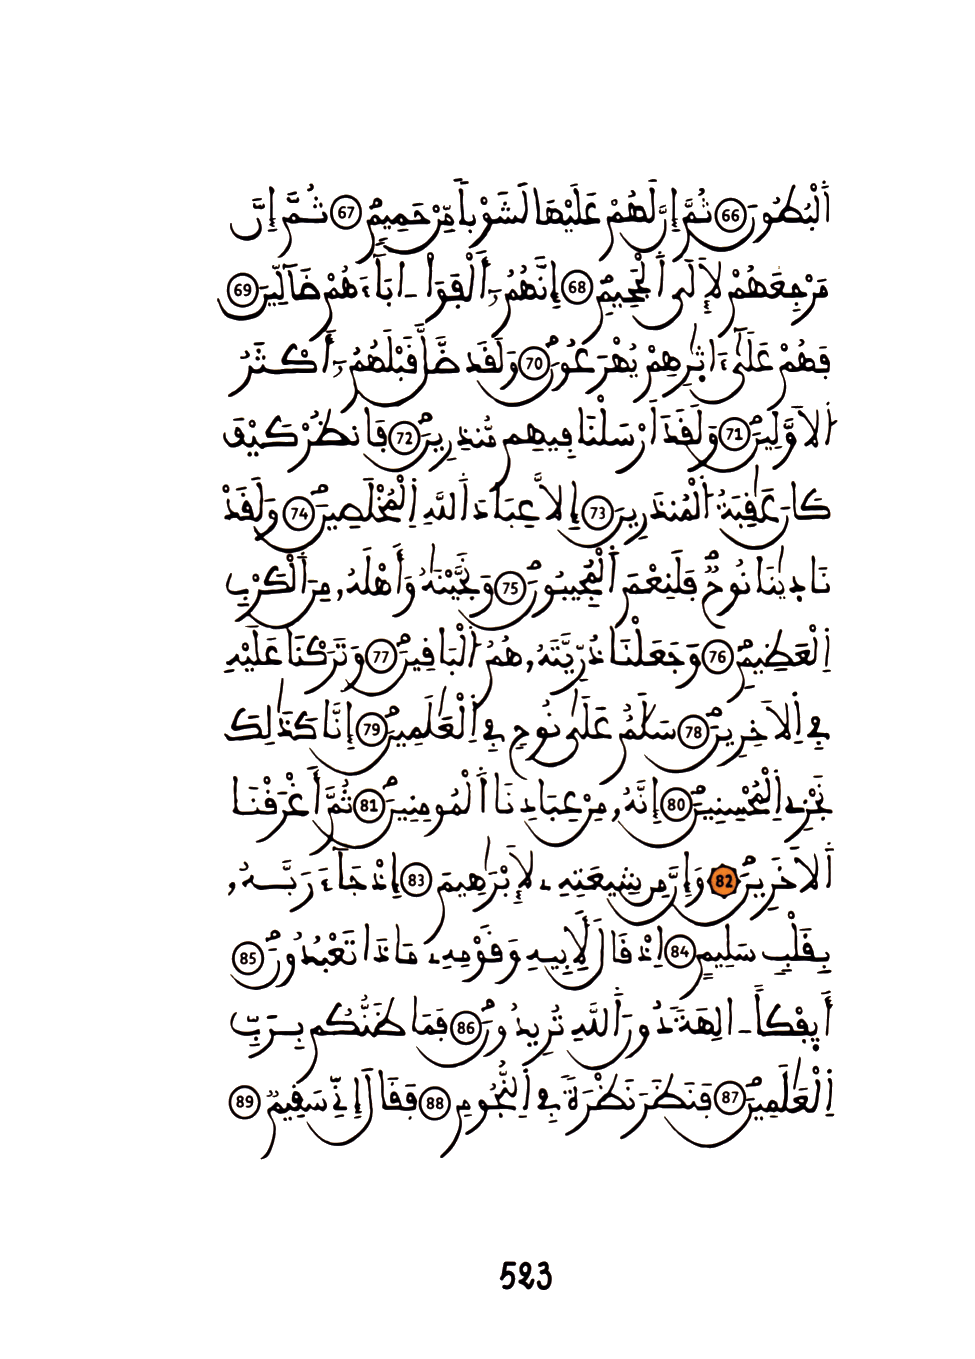 اَ۬لْبُطُونَ 66 ثُمَّ إِنَّ لَهُمْ عَلَيْهَا لَشَوْباٗ مِّنْ حَمِيمٖ 67 ثُمَّ إِنَّ
مَرْجِعَهُمْ لَإِلَى اَ۬لْجَحِيمِ 68 إِنَّهُمُۥٓ أَلْفَوَاْ ـ ابَآءَهُمْ ضَآلِّينَ 69
فَهُمْ عَلَىٰٓ ءَاثٰ۪رِهِمْ يُهْرَعُونَ 70 وَلَقَد ضَّلَّ قَبْلَهُمُۥٓ أَكْثَرُ
اُ۬لَاوَّلِينَ 71 وَلَقَدَ اَرْسَلْنَا فِيهِم مُّنذِرِينَ 72 فَانظُرْ كَيْفَ
كَانَ عَٰقِبَةُ اُ۬لْمُنذَرِينَ 73 إِلَّا عِبَادَ اَ۬للَّهِ اِ۬لْمُخْلَصِينَ 74 وَلَقَدْ
نَاد۪يٰنَا نُوحٞ فَلَنِعْمَ اَ۬لْمُجِيبُونَ 75 وَنَجَّيْنَٰهُ وَأَهْلَهُۥ مِنَ اَ۬لْكَرْبِ
اِ۬لْعَظِيمِ 76 وَجَعَلْنَا ذُرِّيَّتَهُۥ هُمُ اُ۬لْبَاقِينَ 77 وَتَرَكْنَا عَلَيْهِ
فِے اِ۬لَاخِرِينَ 78 سَلَٰمٌ عَلَىٰ نُوحٖ فِے اِ۬لْعَٰلَمِينَ 79 إِنَّا كَذَٰلِكَ
نَجْزِے اِ۬لْمُحْسِنِينَ 80 إِنَّهُۥ مِنْ عِبَادِنَا اَ۬لْمُومِنِينَ 81 ثُمَّ أَغْرَقْنَا
اَ۬لَاخَرِينَ 82 وَإِنَّ مِن شِيعَتِهِۦ لَإِبْرَٰهِيمَ 83 إِذْ جَآءَ رَبَّهُۥ
بِقَلْبٖ سَلِيمٍ 84 اِذْ قَالَ لِأَبِيهِ وَقَوْمِهِۦ مَاذَا تَعْبُدُونَ 85
أَئِفْكاً ـ اٰلِهَةٗ دُونَ اَ۬للَّهِ تُرِيدُونَ 86 فَمَا ظَنُّكُم بِرَبِّ
اِ۬لْعَٰلَمِينَ 87 فَنَظَرَ نَظْرَةٗ فِے اِ۬لنُّجُومِ 88 فَقَالَ إِنِّے سَقِيمٞ 89
523